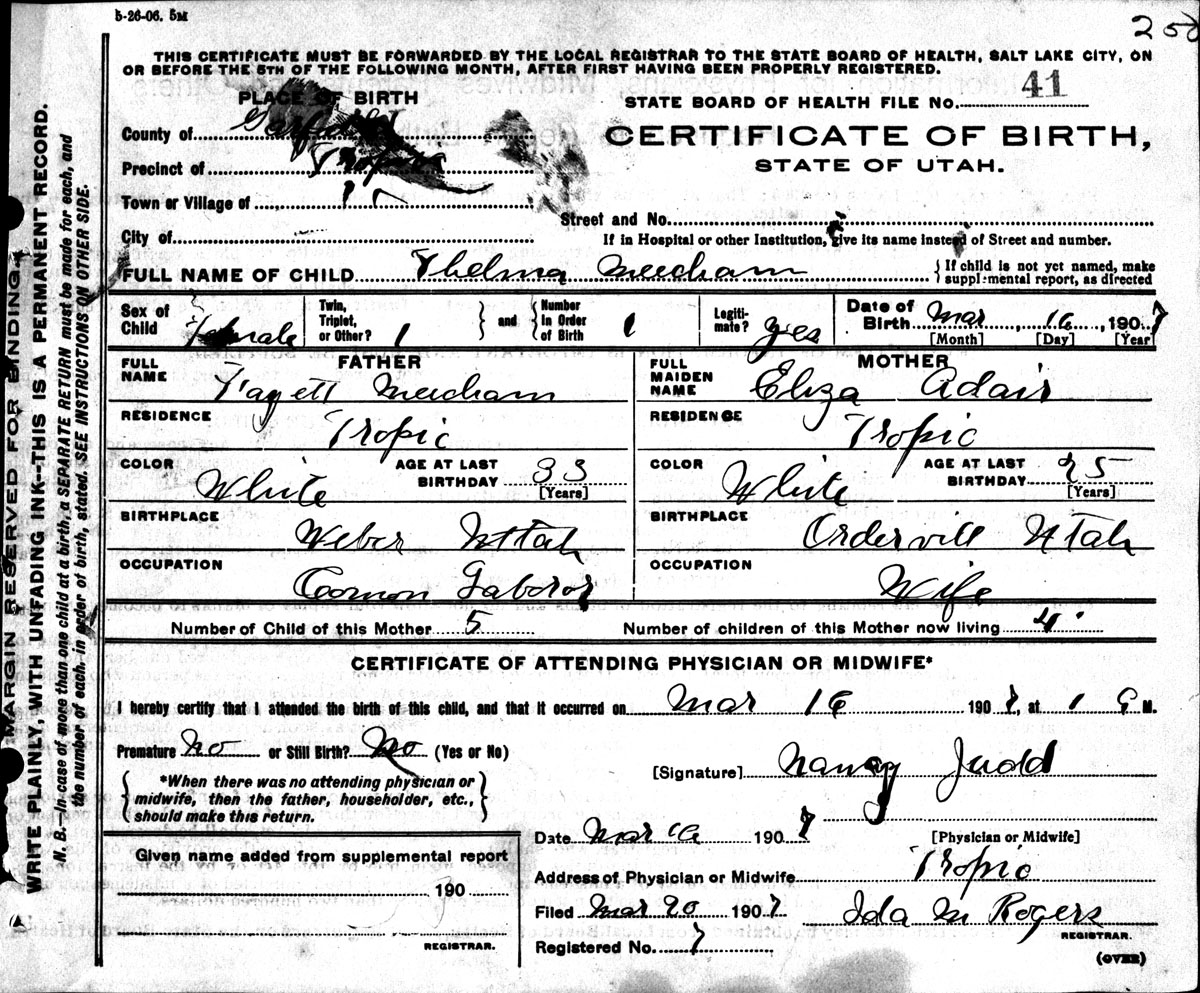 5-26-06. 5M
250
THIS CERTIFICATE MUST BE FORWARDED BY THE LOCAL REGISTRAR TO THE STATE BOARD OF HEALTH, SALT LAKE CITY, ON
OR BEFORE THE 5TH OF THE FOLLOWING MONTH, AFTER FIRST HAVING BEEN PROPERLY REGISTERED.
PLACE OF BIRTH
STATE BOARD OF HEALTH FILE No. 41
County of Garfield
CERTIFICATE OF BIRTH,
STATE OF UTAH.
Precinct of Tropic
Town or Village of
Street and No.
City of
If in Hospital or other Institution, give its name instead of Street and number.
FULL NAME OF CHILD Thelma Meecham
{ If child is not yet named, make
supplemental report, as directed
Sex of Child Female
Twin, Triplet, or Other? 1 } and { Number in Order of Birth 1
Legitimate? yes
Date of Birth Mar, 16, 1907
[Month] [Day] [Year
FATHER
FULL NAME Fayett Meecham
RESIDENCE Tropic
COLOR White AGE AT LAST BIRTHDAY 33
[Years]
BIRTHPLACE Weber Uttah
OCCUPATION Comon Laboror
MOTHER
FULL MAIDEN NAME Eliza Adair
RESIDENCE Tropic
COLOR White AGE AT LAST BIRTHDAY 25
[Years]
BIRTHPLACE Ordervill Utah
OCCUPATION Wife
Number of Child of this Mother 5 Number of children of this Mother now living 4
CERTIFICATE OF ATTENDING PHYSICIAN OR MIDWIFE*
I hereby certify that I attended the birth of this child, and that it occurred on Mar 16 1907, at 1 M.
Premature No or Still Birth? No (Yes or No)
{ *When there was no attending physician or
midwife, then the father, householder, etc.,
should make this return. }
[Signature] Nancy Judd
Date Mar 16 1907
[Physician or Midwife]
Given name added from supplemental report
190
REGISTRAR.
Address of Physician or Midwife Tropic
Filed Mar 20 1907 Ida M Rogers
REGISTRAR.
Registered No. 7
(OVER)
MARGIN RESERVED FOR BINDING.
WRITE PLAINLY, WITH UNFADING INK--THIS IS A PERMANENT RECORD.
N. B.—In case of more than one child at a birth, a SEPARATE RETURN must be made for each, and
the number of each, in order of birth, stated. SEE INSTRUCTIONS ON OTHER SIDE.